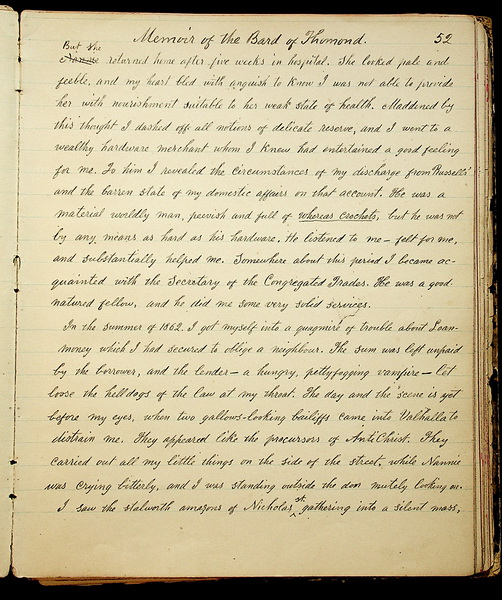 Memoir of the Bard of Thomond. 52
But she
Nannie returned home after five weeks in hospital. She looked pale and
feeble, and my heart bled with anguish to know I was not able to provide
her with nourishment suitable to her weak state of health. Maddened by
this thought I dashed off all notions of delicate reserve, and I went to a
wealthy hardware merchant whom I knew had entertained a good feeling
for me. To him I revealed the circumstances of my discharge from Russell's
and the barren state of my domestic affairs on that account. He was a
material worldly man, peevish and full of whereas crochets, but he was not
by any means as hard as his hardware. He listened to me – felt for me,
and substantially helped me. Somewhere about this period I became ac-
quainted with the Secretary of the Congregated Trades. He was a good-
natured fellow, and he did me some very solid services.
In the summer of 1862. I got myself into a quagmire of trouble about Loan-
money which I had secured to oblige a neighbour. The sum was left unpaid
by the borrower, and the lender – a hungry, pettyfogging vampire – let
loose the helldogs of the law at my throat. The day and the scene is yet
before my eyes, when two gallows-looking bailiffs came into Valhalla to
distrain me. They appeared like the procursors of AntiChrist. They
carried out all my little things on the side of the street, while Nannie
was crying bitterly, and I was standing outside the door mutely looking on.
I saw the stalworth amazons of Nicholas st. gathering into a silent mass,